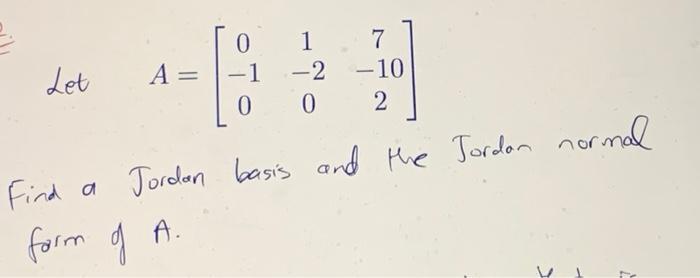 Let A = [ 0 1 7
-1 -2 -10
0 0 2 ]
Find a Jordan basis and the Jordan normal
form of A.